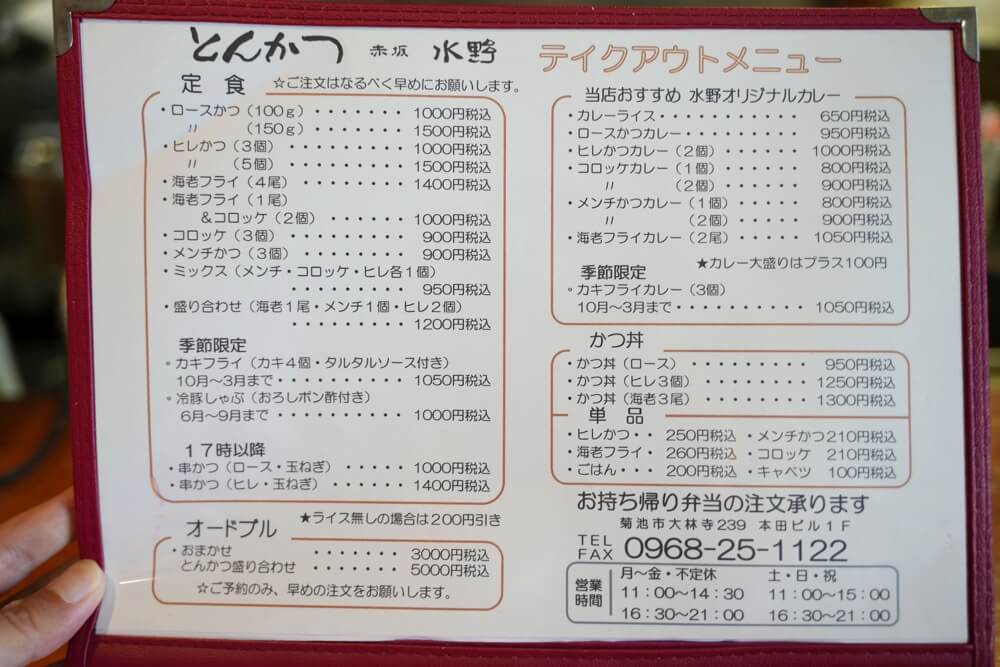 とんかつ 赤坂 水野 テイクアウトメニュー
定食 ☆ご注文はなるべく早めにお願いします。
・ロースかつ（100g）・・・・・・・ 1000円税込
〃 （150g）・・・・・・・ 1500円税込
・ヒレかつ（3個） ・・・・・・・・ 1000円税込
〃 （5個） ・・・・・・・・ 1500円税込
・海老フライ（4尾）・・・・・・・・ 1400円税込
・海老フライ（1尾）
＆コロッケ（2個） ・・・・・・・ 1000円税込
・コロッケ（3個）・・・・・・・・ 900円税込
・メンチかつ（3個）・・・・・・・・ 900円税込
・ミックス（メンチ・コロッケ・ヒレ各1個）
・・・・・・・・・ 950円税込
・盛り合わせ（海老1尾・メンチ1個・ヒレ2個）
・・・・・・・・・ 1200円税込
季節限定
・カキフライ（カキ4個・タルタルソース付き）
10月〜3月まで・・・・・・・・・・ 1050円税込
・冷豚しゃぶ（おろしポン酢付き）
6月〜9月まで ・・・・・・・・・・ 1000円税込
17時以降
・串かつ（ロース・玉ねぎ）・・・・・・ 1000円税込
・串かつ（ヒレ・玉ねぎ）・・・・・・・ 1400円税込
★ライス無しの場合は200円引き
オードブル
・おまかせ ・・・・・・・ 3000円税込
とんかつ盛り合わせ ・・・・・・・ 5000円税込
☆ご予約のみ、早めの注文をお願いします。
当店おすすめ 水野オリジナルカレー
・カレーライス・・・・・・・・・・・ 650円税込
・ロースかつカレー・・・・・・・・・ 950円税込
・ヒレかつカレー（2個）・・・・・・ 1000円税込
・コロッケカレー（1個）・・・・・・ 800円税込
〃 （2個）・・・・・・ 900円税込
・メンチかつカレー（1個）・・・・・ 800円税込
〃 （2個）・・・・・ 900円税込
・海老フライカレー（2尾）・・・・・・ 1050円税込
★カレー大盛りはプラス100円
季節限定
・カキフライカレー（3個）
10月〜3月まで・・・・・・・・・・・ 1050円税込
かつ丼
・かつ丼（ロース）・・・・・・・・・ 950円税込
・かつ丼（ヒレ3個）・・・・・・・・ 1250円税込
・かつ丼（海老3尾）・・・・・・・・ 1300円税込
単品
・ヒレかつ・・ 250円税込 ・メンチかつ210円税込
・海老フライ・ 260円税込 ・コロッケ 210円税込
・ごはん・・・ 200円税込 ・キャベツ 100円税込
お持ち帰り弁当の注文承ります
菊池市大林寺239 本田ビル1F
TEL
FAX 0968-25-1122
営業時間
月〜金・不定休 土・日・祝
11：00〜14：30 11：00〜15：00
16：30〜21：00 16：30〜21：00